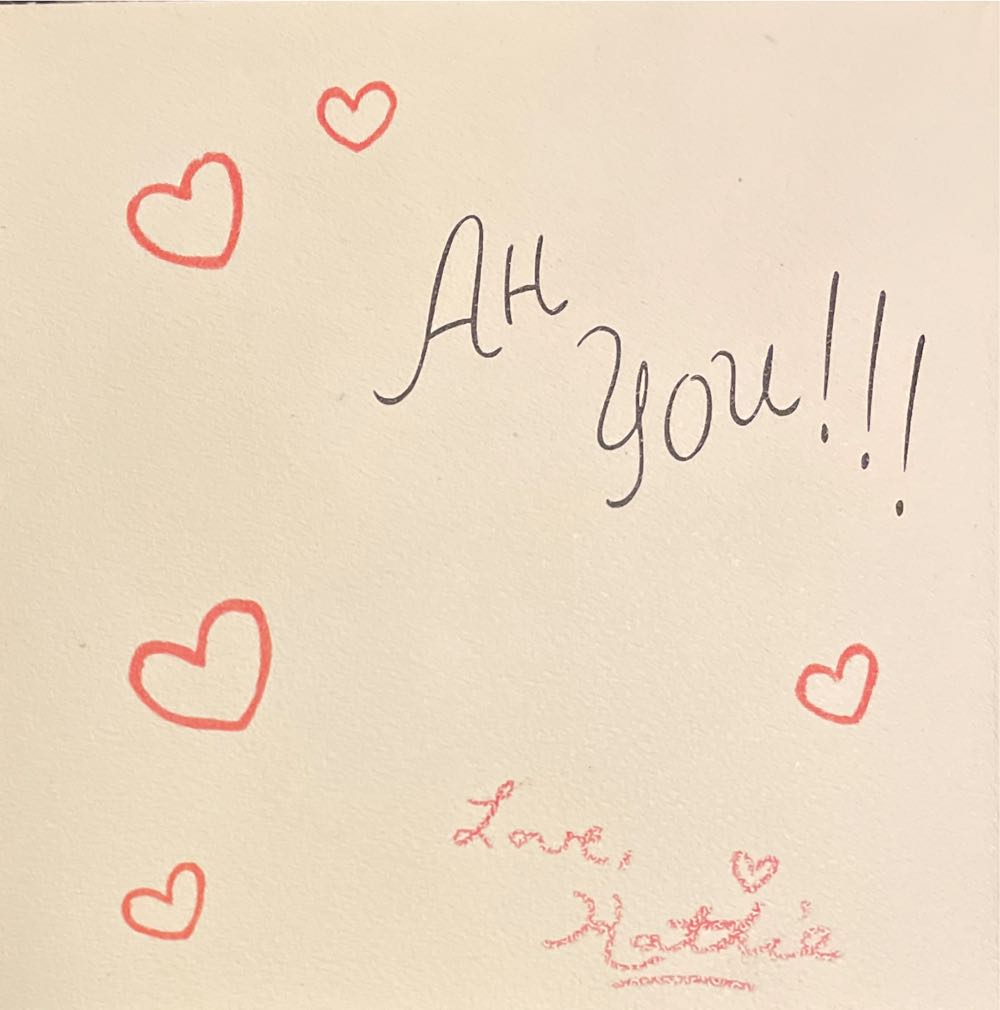 AH
YOU!!!
Love,
Kathie